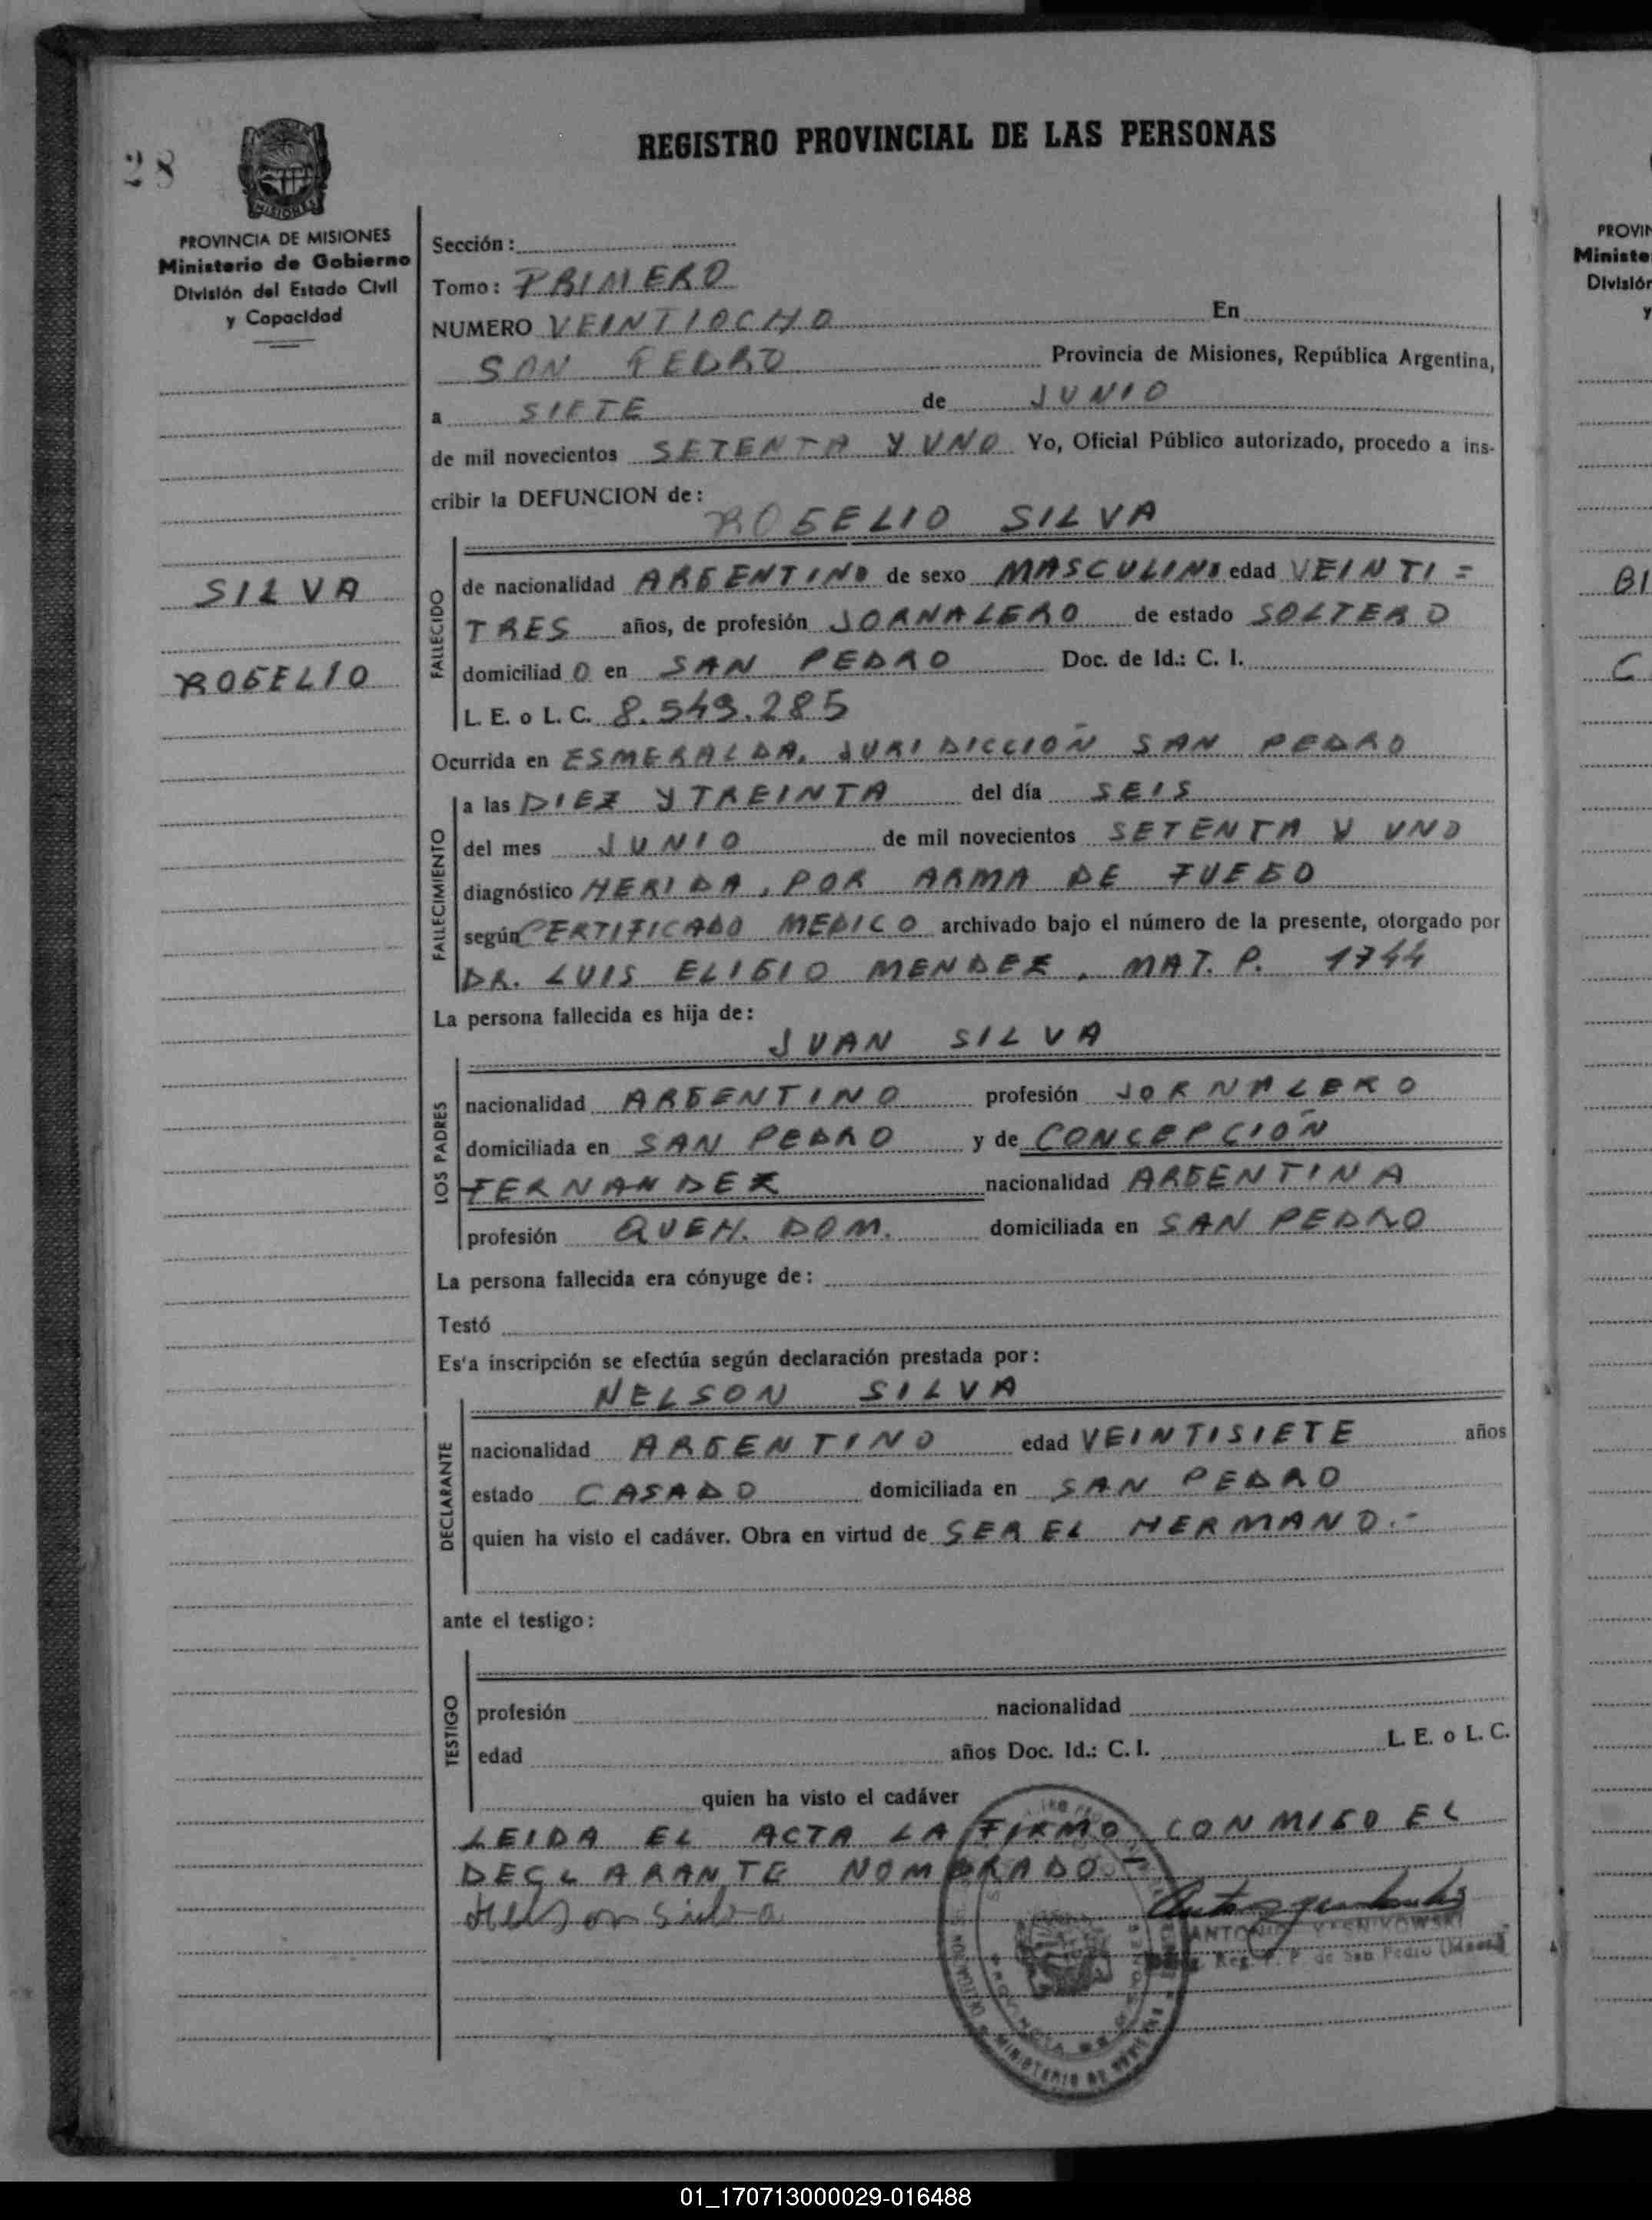 28
REGISTRO PROVINCIAL DE LAS PERSONAS
MISIONES
PROVINCIA DE MISIONES
Ministerio de Gobierno
División del Estado Civil
y Capacidad
SILVA
ROGELIO
Sección:
Tomo: PRIMERO
NUMERO VEINTIOCHO En
SAN PEDRO Provincia de Misiones, República Argentina,
a SIETE de JUNIO
de mil novecientos SETENTA Y UNO Yo, Oficial Público autorizado, procedo a ins-
cribir la DEFUNCION de:
ROGELIO SILVA
FALLECIDO
de nacionalidad ARGENTINO de sexo MASCULINO edad VEINTI =
TRES años, de profesión JORNALERO de estado SOLTERO
domiciliad O en SAN PEDRO Doc. de Id.: C. I.
L. E. o L. C. 8.549.285
Ocurrida en ESMERALDA, JURIDICCIOÑ SAN PEDRO
FALLECIMIENTO
a las DIEZ Y TREINTA del día SEIS
del mes JUNIO de mil novecientos SETENTA Y UNO
diagnóstico HERIDA, POR ARMA DE FUEGO
según CERTIFICADO MEDICO archivado bajo el número de la presente, otorgado por
DR. LUIS ELIGIO MENDEZ, MAT. P. 1744
La persona fallecida es hija de:
JUAN SILVA
LOS PADRES
nacionalidad ARGENTINO profesión JORNALERO
domiciliada en SAN PEDRO y de CONCEPCIOÑ
FERNANDEZ nacionalidad ARGENTINA
profesión QUEH. DOM. domiciliada en SAN PEDRO
La persona fallecida era cónyuge de:
Testó
Es'a inscripción se efectúa según declaración prestada por:
NELSON SILVA
DECLARANTE
nacionalidad ARGENTINO edad VEINTISIETE años
estado CASADO domiciliada en SAN PEDRO
quien ha visto el cadáver. Obra en virtud de SER EL HERMANO.-
ante el testigo:
TESTIGO
profesión nacionalidad
edad años Doc. Id.: C. I. L. E. o L. C.
quien ha visto el cadáver
LEIDA EL ACTA LA FIRMO CONMIGO EL
DECLARANTE NOMBRADO.-
nelson silva
ANTONIO YASNIKOWSKI
Reg. P. P. de San Pedro
MINISTERIO DE
PROVIN
Ministe
División
y
BI
C
01_170713000029-016488